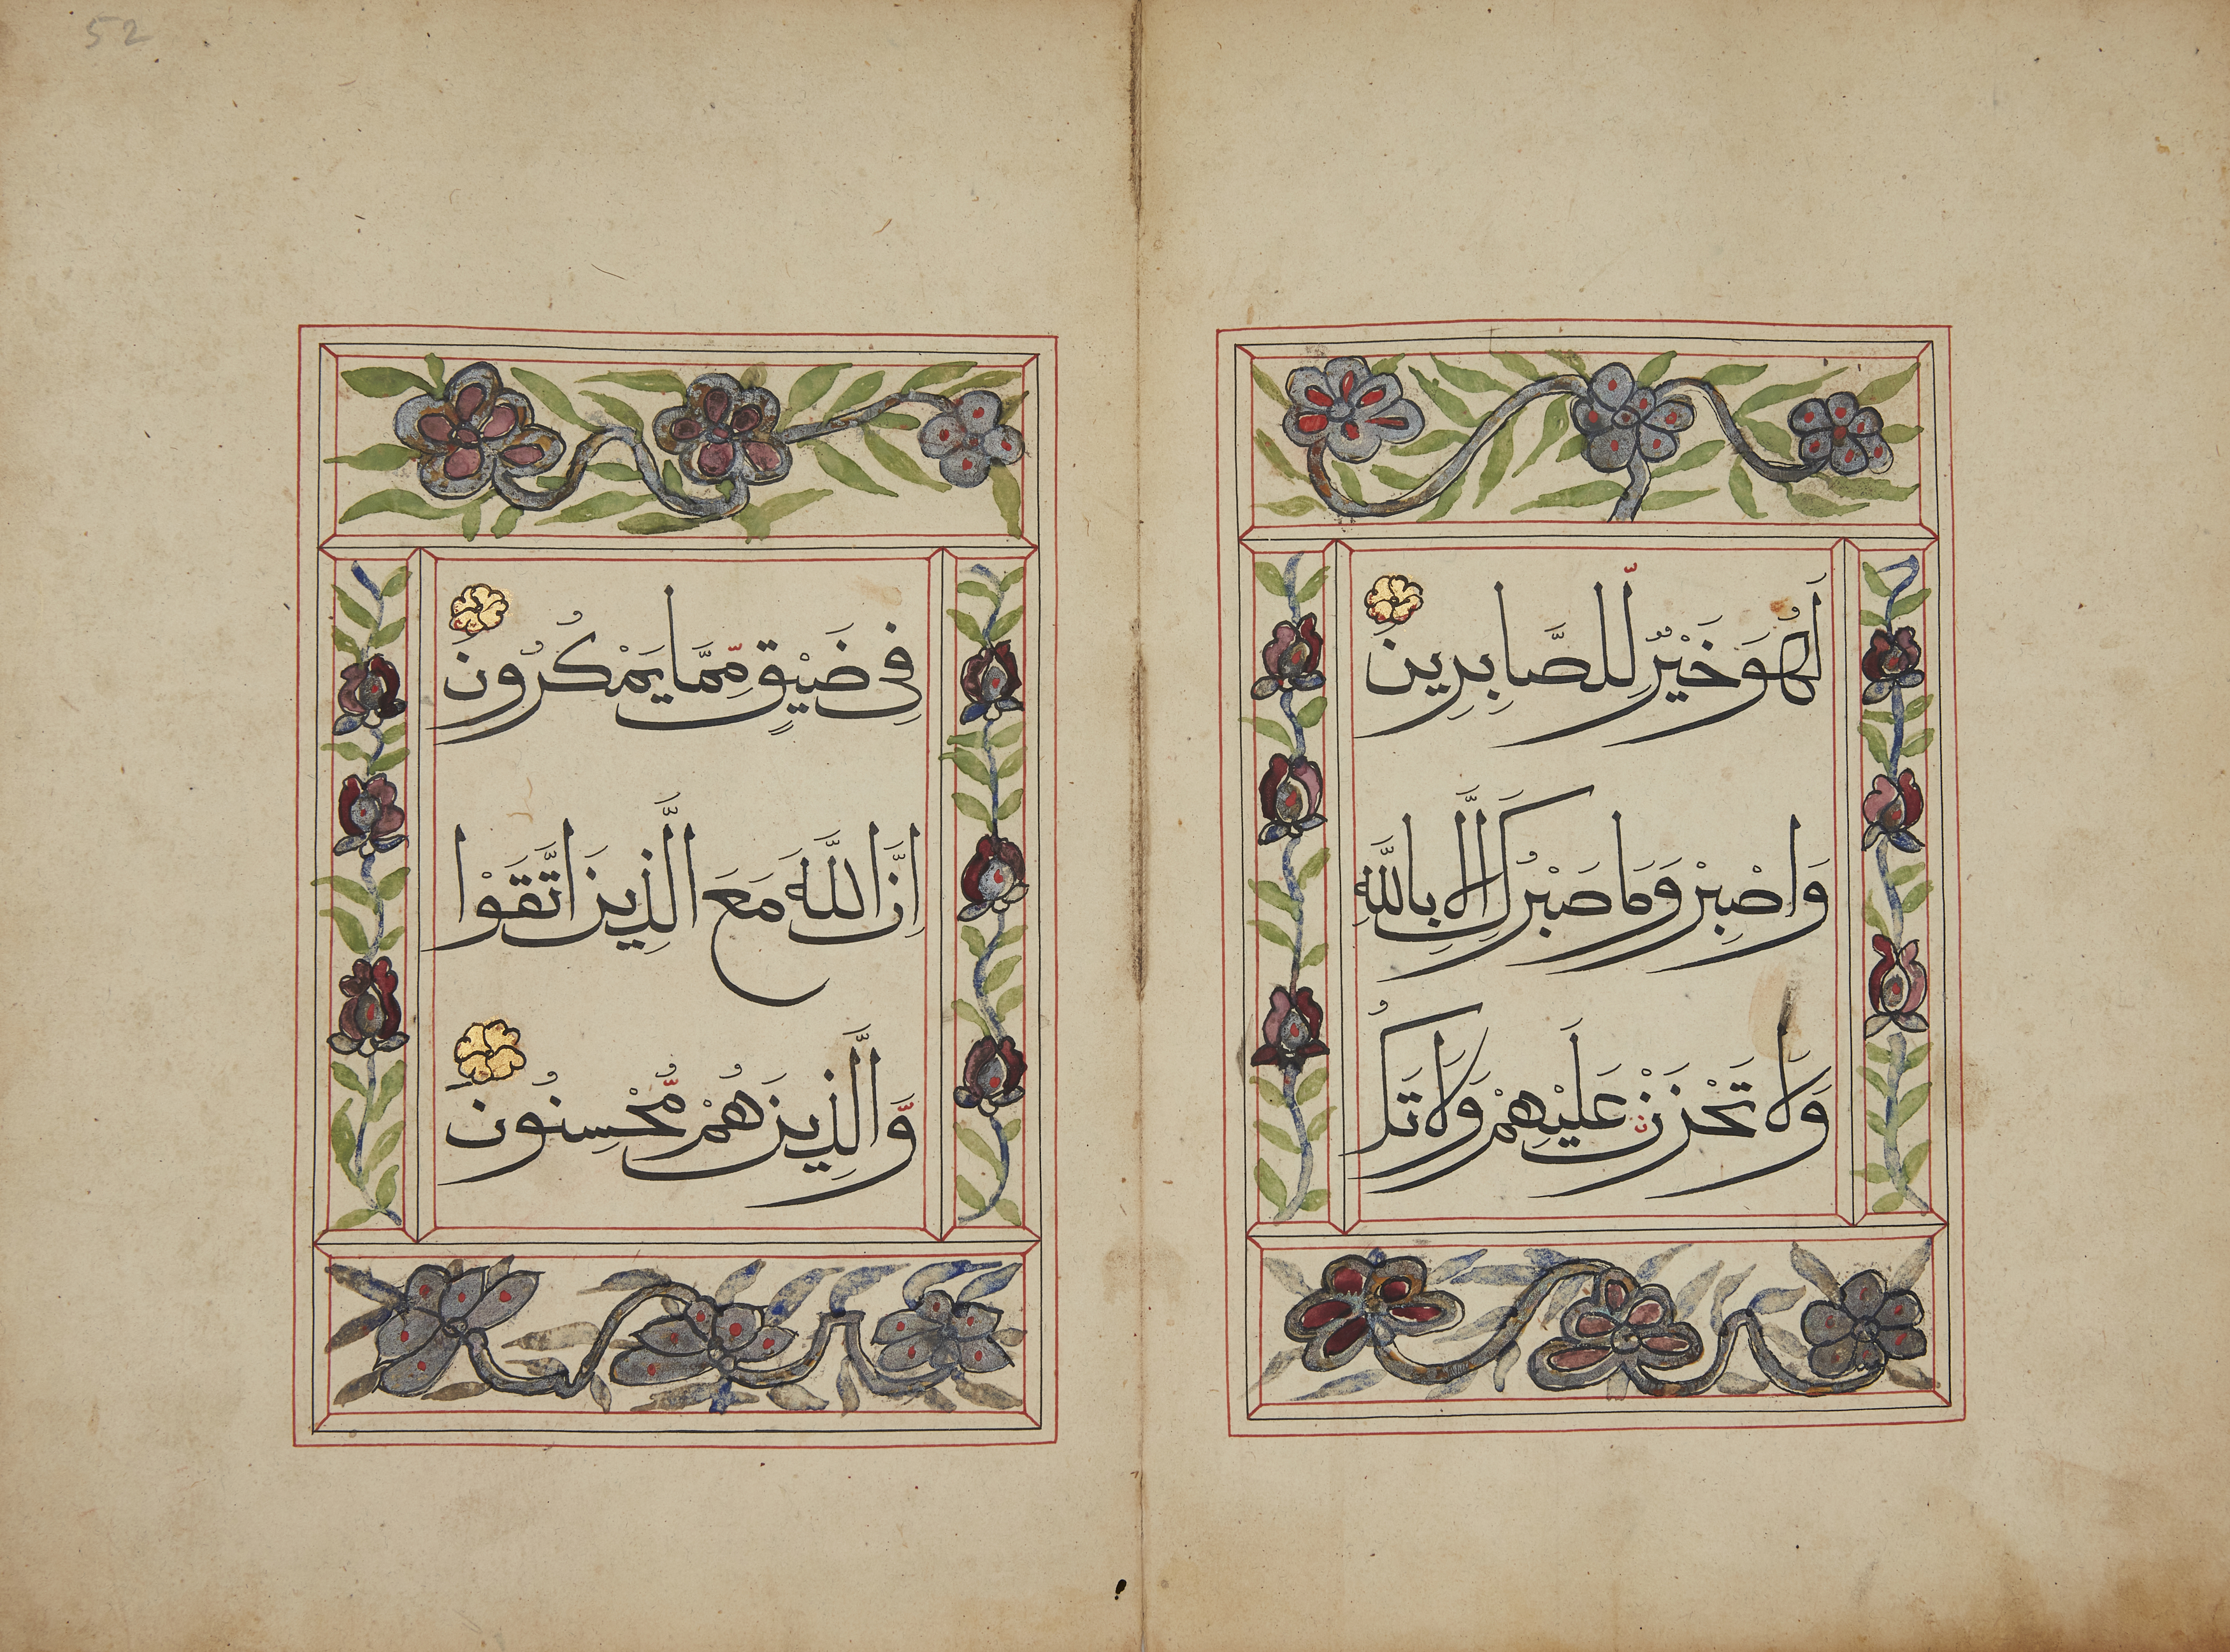 لَهُوَ خَيْرٌ لِّلصَّابِرِينَ
وَاصْبِرْ وَمَا صَبْرُكَ اِلَّا بِاللَّهِ
وَلَا تَحْزَنْ عَلَيْهِمْ وَلَا تَكُ
فِى ضَيْقٍ مِّمَّا يَمْكُرُونَ
اِنَّ اللَّهَ مَعَ الَّذِينَ اتَّقَوْا
وَّالَّذِينَ هُمْ مُّحْسِنُونَ
52